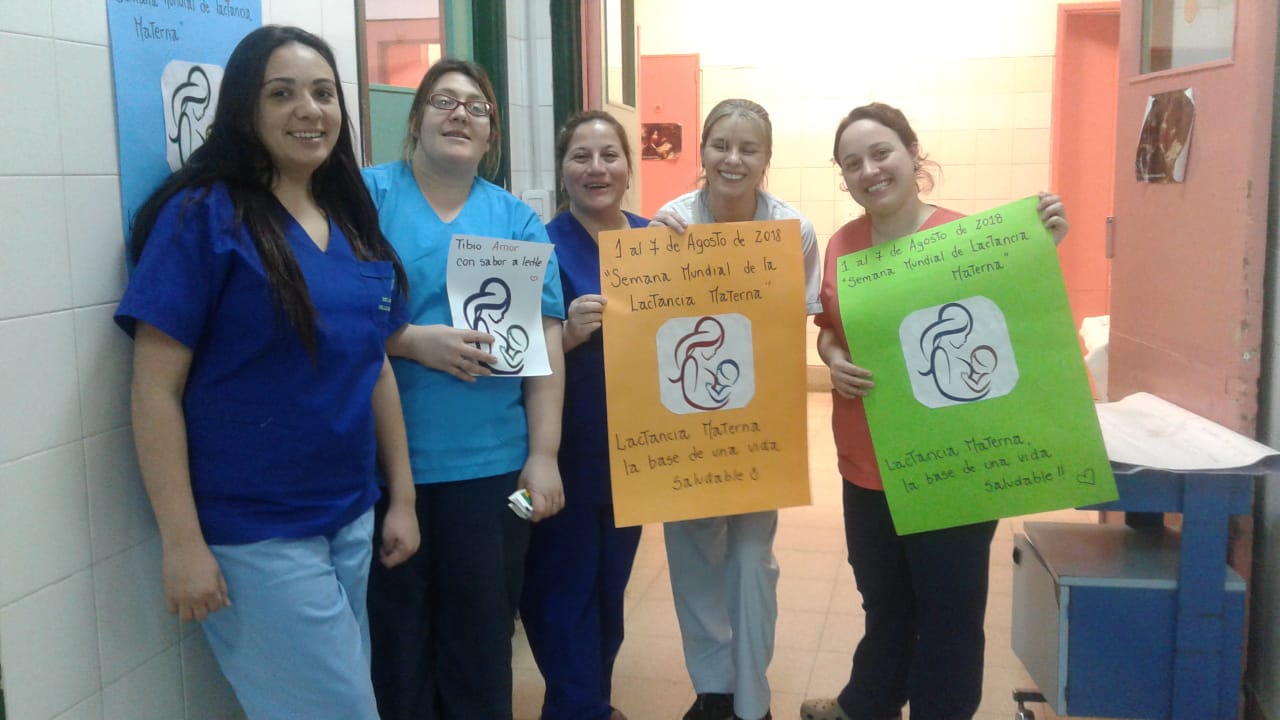 Semana Mundial de lactancia
Materna"
Tibio Amor
con sabor a leche
1 al 7 de Agosto de 2018
"Semana Mundial de la
Lactancia Materna"
Lactancia Materna
la base de una vida
saludable
1 al 7 de Agosto de 2018
"Semana Mundial de Lactancia
Materna"
Lactancia Materna,
la base de una vida
saludable!!